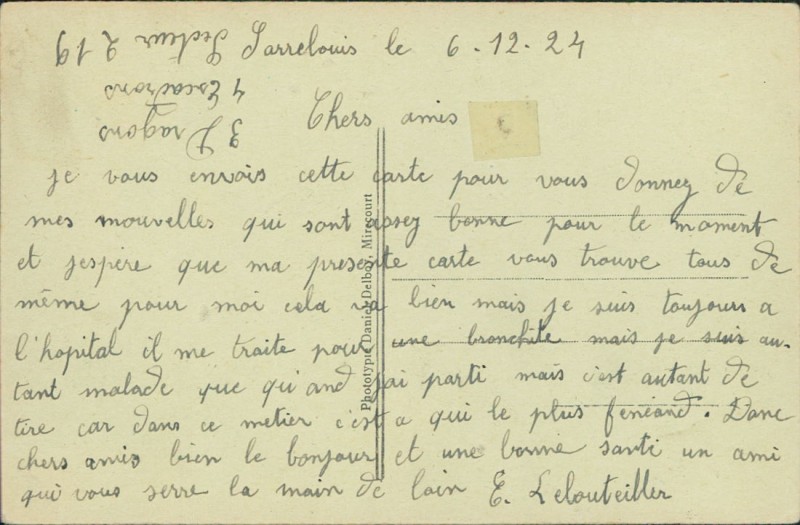 Sarrelouis le 6-12-24
Chers amis
je vous envois cette carte pour vous donnez de
mes mouvelles qui sont assez bonne pour le moment
et jespère que ma presente carte vous trouve tous de
même pour moi cela va bien mais je suis toujours a
l'hopital il me traite pour une bronchite mais je suis au-
tant malade que qu'and jai parti mais c'est autant de
tire car dans ce metier c'est a qui le plus fenéand. Donc
chers amis bien le bonjour et une bonne santi un ami
qui vous serre la main de loin E. Lelouteiller
3 Dragons
4 Escadrons
Secteur 219
Phototypie Daniel Delboy, Mirecourt